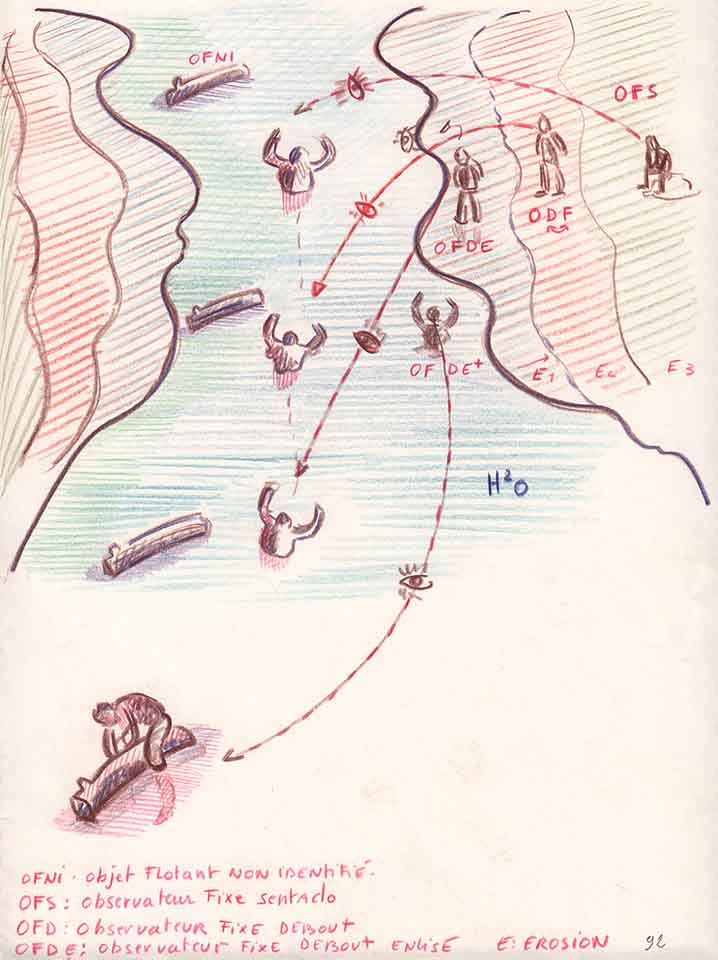 OFNI
OFS
ODF
OFDE
OFDE+
E1
E2
E3
H²O
OFNI . objet Flotant NON IDENTIFIÉ.
OFS : observateur Fixe sentado
OFD : observateur FIXE DEBOUT
OFDE : observateur FIXE DEBOUT ENLISÉ E: EROSION 92